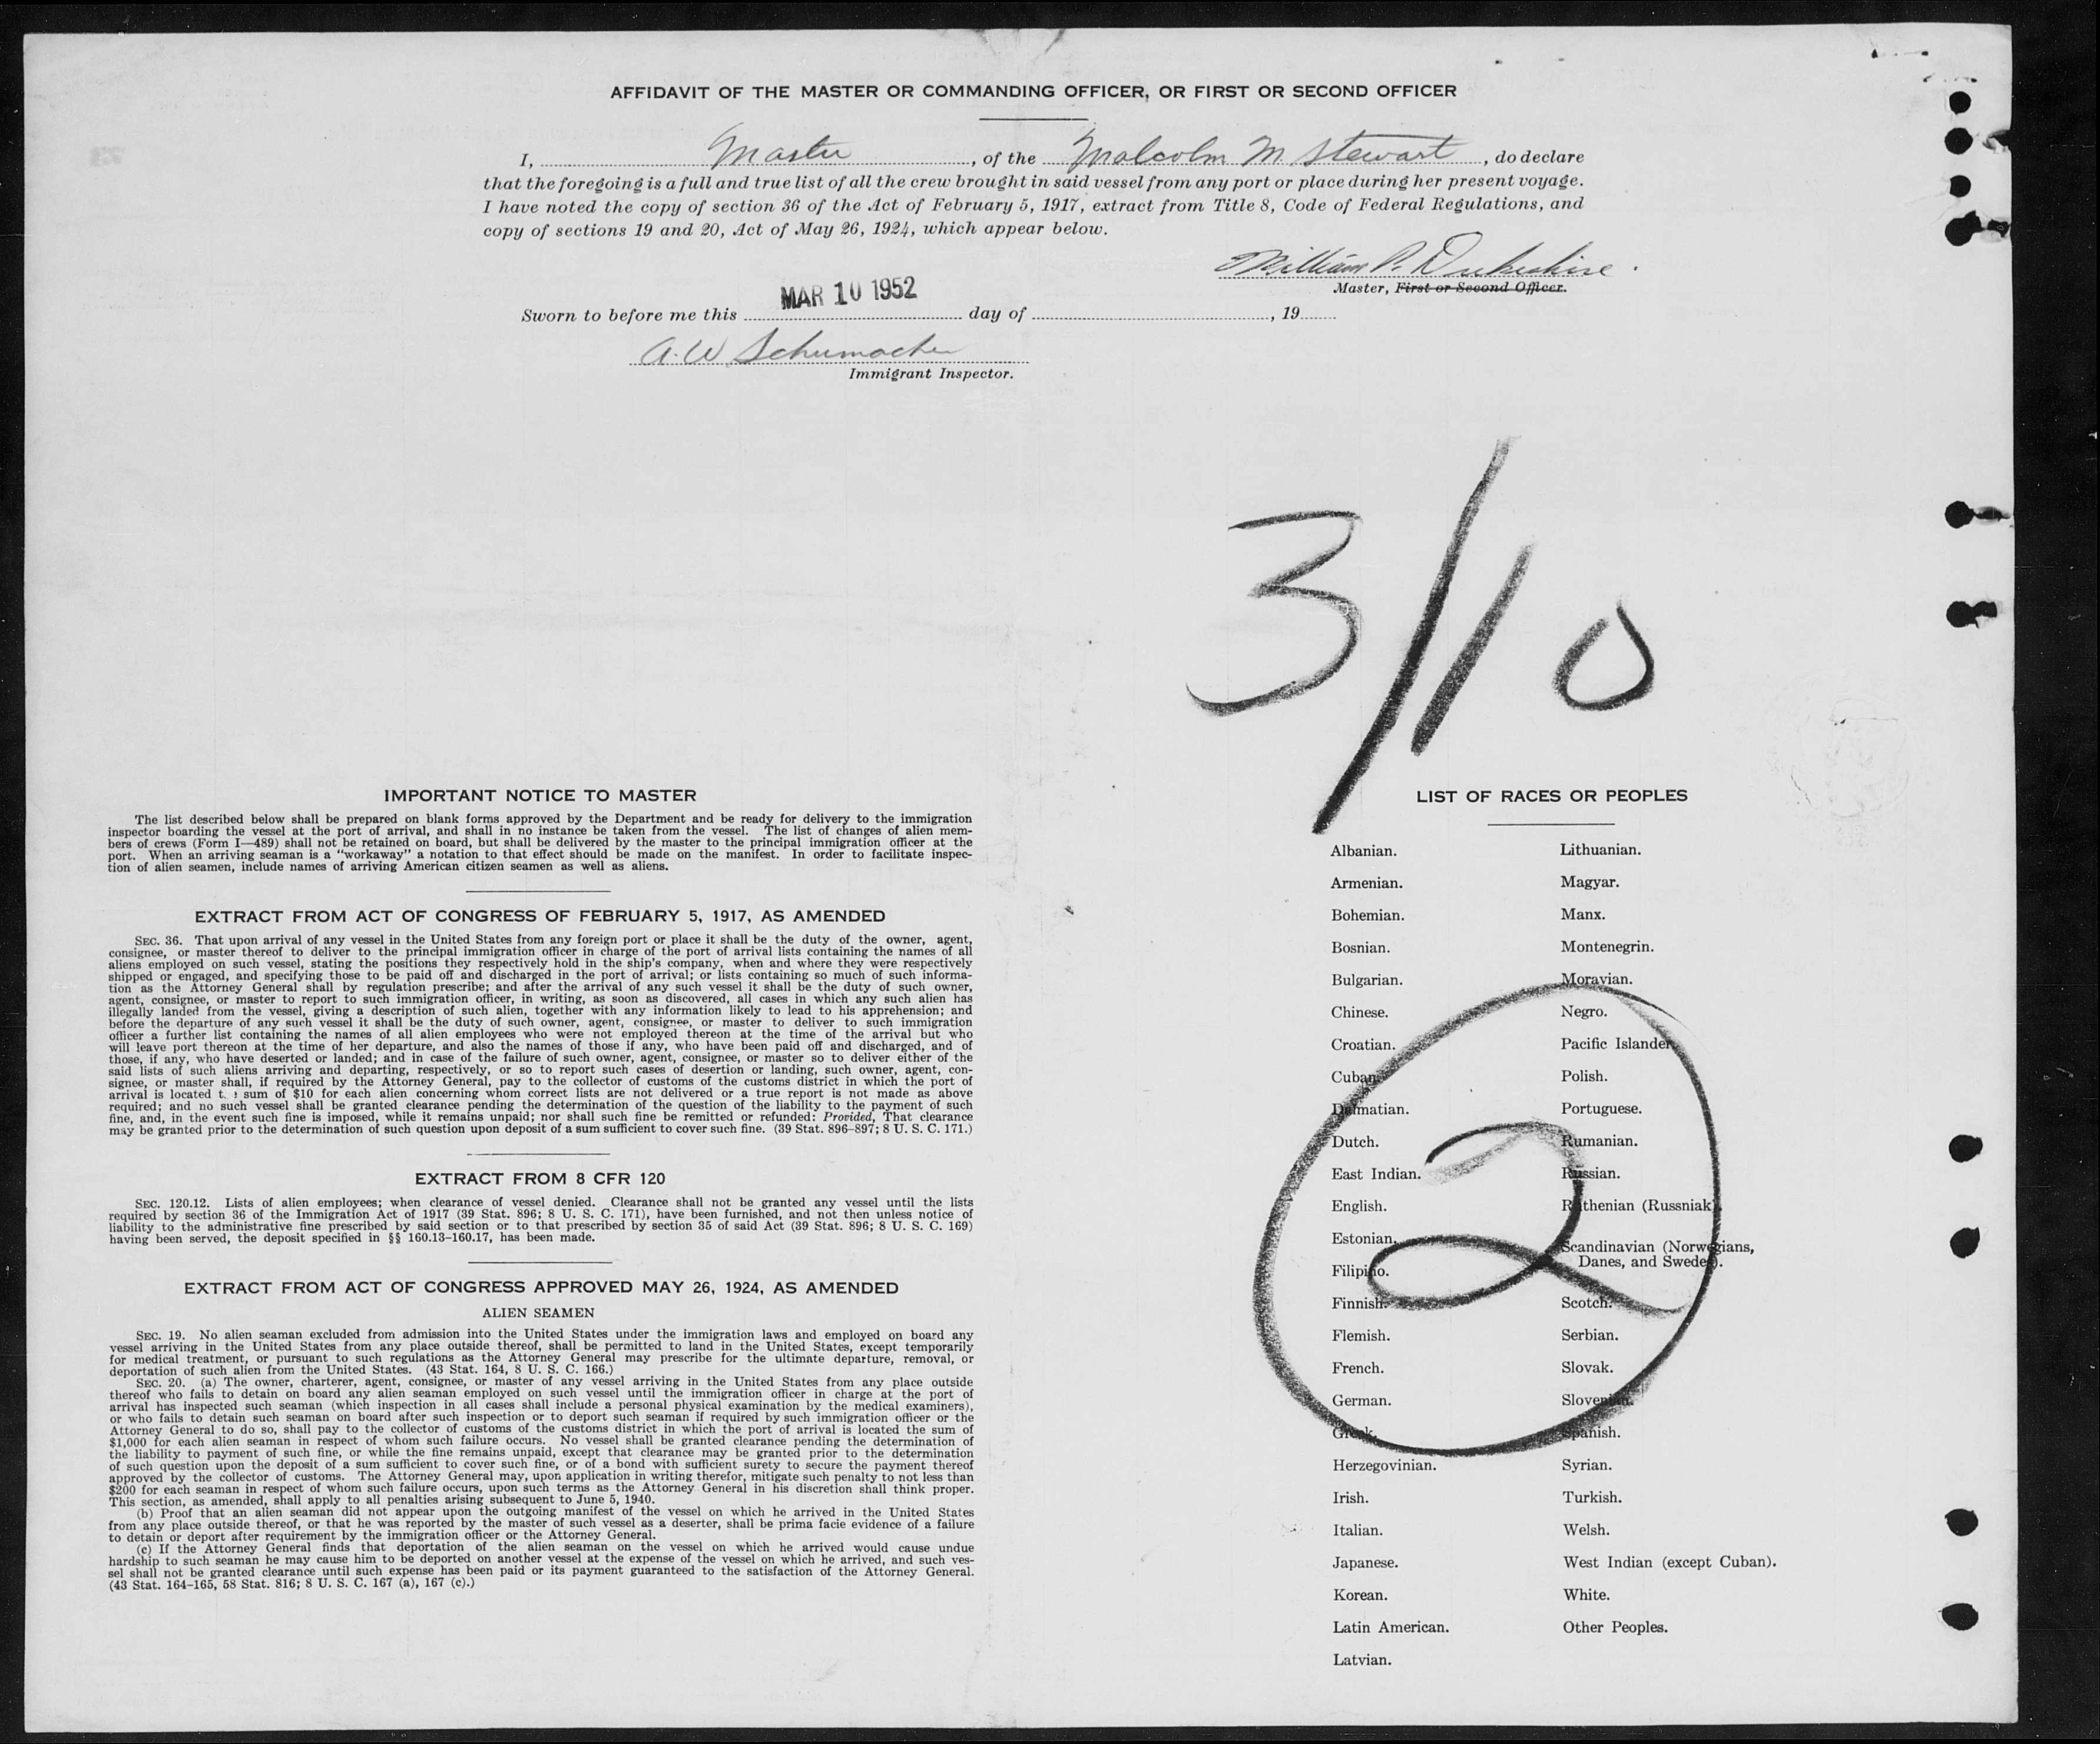 AFFIDAVIT OF THE MASTER OR COMMANDING OFFICER, OR FIRST OR SECOND OFFICER
I, Master, of the Malcolm M. Stewart, do declare
that the foregoing is a full and true list of all the crew brought in said vessel from any port or place during her present voyage.
I have noted the copy of section 36 of the Act of February 5, 1917, extract from Title 8, Code of Federal Regulations, and
copy of sections 19 and 20, Act of May 26, 1924, which appear below.
William P. Dukeshire.
Master, First or Second Officer.
MAR 10 1952
Sworn to before me this day of , 19
A. W Schumacher
Immigrant Inspector.
3/10
IMPORTANT NOTICE TO MASTER
The list described below shall be prepared on blank forms approved by the Department and be ready for delivery to the immigration
inspector boarding the vessel at the port of arrival, and shall in no instance be taken from the vessel. The list of changes of alien mem-
bers of crews (Form I—489) shall not be retained on board, but shall be delivered by the master to the principal immigration officer at the
port. When an arriving seaman is a "workaway" a notation to that effect should be made on the manifest. In order to facilitate inspec-
tion of alien seamen, include names of arriving American citizen seamen as well as aliens.
EXTRACT FROM ACT OF CONGRESS OF FEBRUARY 5, 1917, AS AMENDED
SEC. 36. That upon arrival of any vessel in the United States from any foreign port or place it shall be the duty of the owner, agent,
consignee, or master thereof to deliver to the principal immigration officer in charge of the port of arrival lists containing the names of all
aliens employed on such vessel, stating the positions they respectively hold in the ship's company, when and where they were respectively
shipped or engaged, and specifying those to be paid off and discharged in the port of arrival; or lists containing so much of such informa-
tion as the Attorney General shall by regulation prescribe; and after the arrival of any such vessel it shall be the duty of such owner,
agent, consignee, or master to report to such immigration officer, in writing, as soon as discovered, all cases in which any such alien has
illegally landed from the vessel, giving a description of such alien, together with any information likely to lead to his apprehension; and
before the departure of any such vessel it shall be the duty of such owner, agent, consignee, or master to deliver to such immigration
officer a further list containing the names of all alien employees who were not employed thereon at the time of the arrival but who
will leave port thereon at the time of her departure, and also the names of those if any, who have been paid off and discharged, and of
those, if any, who have deserted or landed; and in case of the failure of such owner, agent, consignee, or master so to deliver either of the
said lists of such aliens arriving and departing, respectively, or so to report such cases of desertion or landing, such owner, agent, con-
signee, or master shall, if required by the Attorney General, pay to the collector of customs of the customs district in which the port of
arrival is located sum of $10 for each alien concerning whom correct lists are not delivered or a true report is not made as above
required; and no such vessel shall be granted clearance pending the determination of the question of the liability to the payment of such
fine, and, in the event such fine is imposed, while it remains unpaid; nor shall such fine be remitted or refunded: Provided, That clearance
may be granted prior to the determination of such question upon deposit of a sum sufficient to cover such fine. (39 Stat. 896–897; 8 U. S. C. 171.)
EXTRACT FROM 8 CFR 120
SEC. 120.12. Lists of alien employees; when clearance of vessel denied. Clearance shall not be granted any vessel until the lists
required by section 36 of the Immigration Act of 1917 (39 Stat. 896; 8 U. S. C. 171), have been furnished, and not then unless notice of
liability to the administrative fine prescribed by said section or to that prescribed by section 35 of said Act (39 Stat. 896; 8 U. S. C. 169)
having been served, the deposit specified in §§ 160.13–160.17, has been made.
EXTRACT FROM ACT OF CONGRESS APPROVED MAY 26, 1924, AS AMENDED
ALIEN SEAMEN
SEC. 19. No alien seaman excluded from admission into the United States under the immigration laws and employed on board any
vessel arriving in the United States from any place outside thereof, shall be permitted to land in the United States, except temporarily
for medical treatment, or pursuant to such regulations as the Attorney General may prescribe for the ultimate departure, removal, or
deportation of such alien from the United States. (43 Stat. 164, 8 U. S. C. 166.)
SEC. 20. (a) The owner, charterer, agent, consignee, or master of any vessel arriving in the United States from any place outside
thereof who fails to detain on board any alien seaman employed on such vessel until the immigration officer in charge at the port of
arrival has inspected such seaman (which inspection in all cases shall include a personal physical examination by the medical examiners),
or who fails to detain such seaman on board after such inspection or to deport such seaman if required by such immigration officer or the
Attorney General to do so, shall pay to the collector of customs of the customs district in which the port of arrival is located the sum of
$1,000 for each alien seaman in respect of whom such failure occurs. No vessel shall be granted clearance pending the determination of
the liability to payment of such fine, or while the fine remains unpaid, except that clearance may be granted prior to the determination
of such question upon the deposit of a sum sufficient to cover such fine, or of a bond with sufficient surety to secure the payment thereof
approved by the collector of customs. The Attorney General may, upon application in writing therefor, mitigate such penalty to not less than
$200 for each seaman in respect of whom such failure occurs, upon such terms as the Attorney General in his discretion shall think proper.
This section, as amended, shall apply to all penalties arising subsequent to June 5, 1940.
(b) Proof that an alien seaman did not appear upon the outgoing manifest of the vessel on which he arrived in the United States
from any place outside thereof, or that he was reported by the master of such vessel as a deserter, shall be prima facie evidence of a failure
to detain or deport after requirement by the immigration officer or the Attorney General.
(c) If the Attorney General finds that deportation of the alien seaman on the vessel on which he arrived would cause undue
hardship to such seaman he may cause him to be deported on another vessel at the expense of the vessel on which he arrived, and such ves-
sel shall not be granted clearance until such expense has been paid or its payment guaranteed to the satisfaction of the Attorney General.
(43 Stat. 164–165, 58 Stat. 816; 8 U. S. C. 167 (a), 167 (c).)
LIST OF RACES OR PEOPLES
Albanian.
Armenian.
Bohemian.
Bosnian.
Bulgarian.
Chinese.
Croatian.
Cuban.
Dalmatian.
Dutch.
East Indian.
English.
Estonian.
Filipino.
Finnish.
Flemish.
French.
German.
Greek.
Herzegovinian.
Irish.
Italian.
Japanese.
Korean.
Latin American.
Latvian.
Lithuanian.
Magyar.
Manx.
Montenegrin.
Moravian.
Negro.
Pacific Islander.
Polish.
Portuguese.
Rumanian.
Russian.
Ruthenian (Russniak).
Scandinavian (Norwegians,
Danes, and Swedes).
Scotch.
Serbian.
Slovak.
Slovenian.
Spanish.
Syrian.
Turkish.
Welsh.
West Indian (except Cuban).
White.
Other Peoples.
2